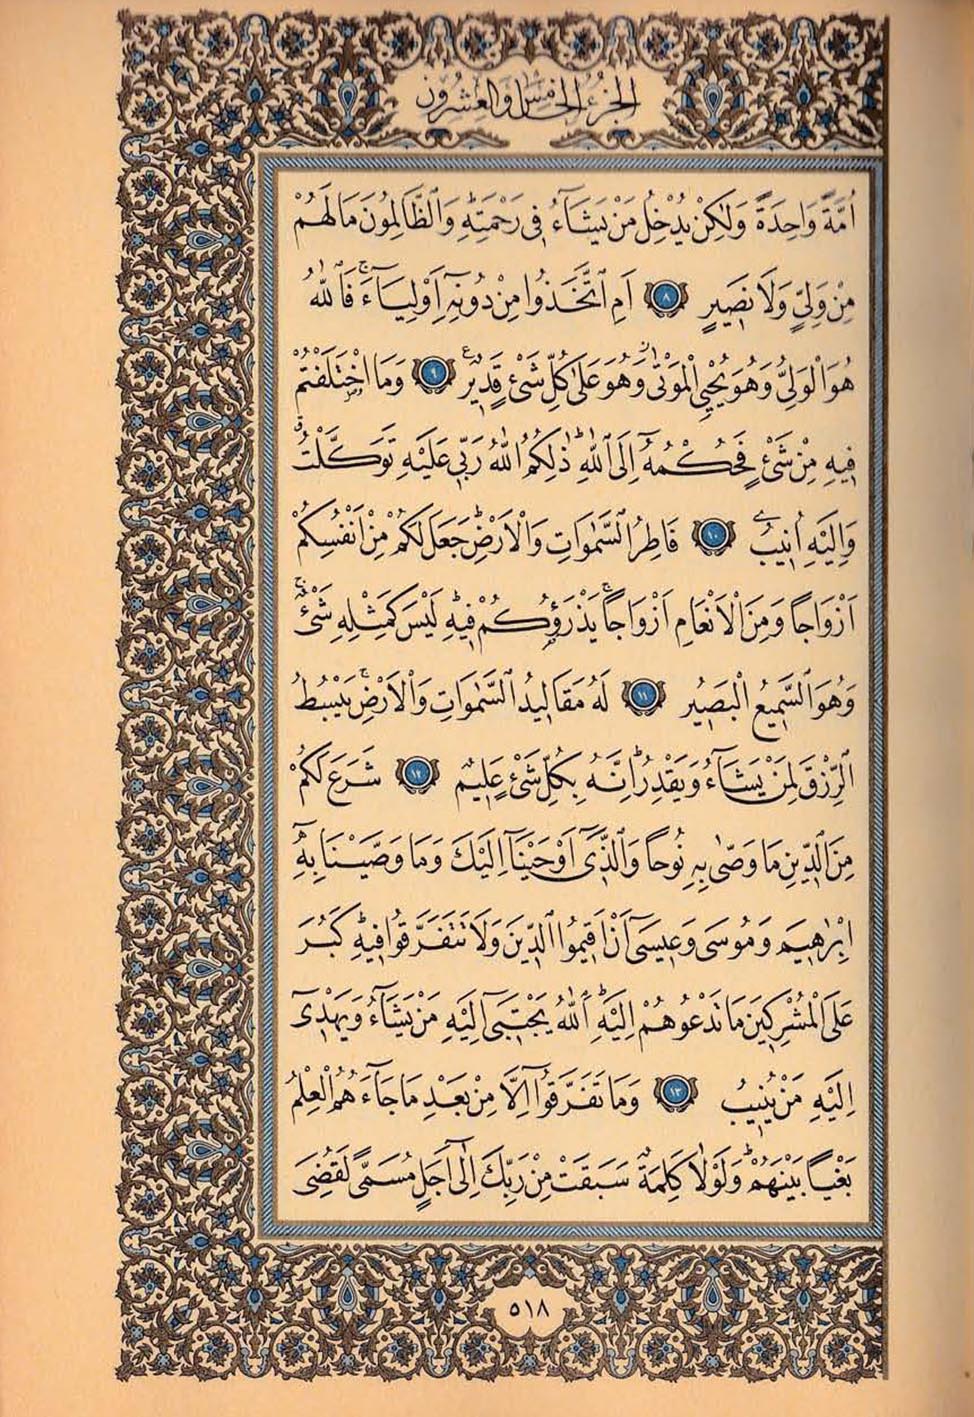 الجزء الخامس والعشرون
اُمَّةً وَاحِدَةً وَلٰكِنْ يُدْخِلُ مَنْ يَشَٓاءُ فٖي رَحْمَتِهٖؕ وَالظَّالِمُونَ مَا لَهُمْ
مِنْ وَلِيٍّ وَلَا نَصٖيرٍ ﴿٨﴾ اَمِ اتَّخَذُوا مِنْ دُونِهٖٓ اَوْلِيَٓاءَۚ فَاللّٰهُ
هُوَ الْوَلِيُّ وَهُوَ يُحْيِ الْمَوْتٰىؗ وَهُوَ عَلٰى كُلِّ شَيْءٍ قَدٖيرٌࣖ ﴿٩﴾ وَمَا اخْتَلَفْتُمْ
فٖيهِ مِنْ شَيْءٍ فَحُكْمُهُٓ اِلَى اللّٰهِؕ ذٰلِكُمُ اللّٰهُ رَبّٖي عَلَيْهِ تَوَكَّلْتُۗ
وَاِلَيْهِ اُنٖيبُ ﴿١٠﴾ فَاطِرُ السَّمٰوَاتِ وَالْاَرْضِؕ جَعَلَ لَكُمْ مِنْ اَنْفُسِكُمْ
اَزْوَاجاً وَمِنَ الْاَنْعَامِ اَزْوَاجاًۚ يَذْرَؤُ۬كُمْ فٖيهِؕ لَيْسَ كَمِثْلِهٖ شَيْءٌۚ
وَهُوَ السَّمٖيعُ الْبَصٖيرُ ﴿١١﴾ لَهُ مَقَالٖيدُ السَّمٰوَاتِ وَالْاَرْضِۚ يَبْسُطُ
الرِّزْقَ لِمَنْ يَشَٓاءُ وَيَقْدِرُؕ اِنَّهُ بِكُلِّ شَيْءٍ عَلٖيمٌ ﴿١٢﴾ شَرَعَ لَكُمْ
مِنَ الدّٖينِ مَا وَصّٰى بِهٖ نُوحاً وَالَّذٖٓي اَوْحَيْنَٓا اِلَيْكَ وَمَا وَصَّيْنَا بِهٖٓ
اِبْرٰهٖيمَ وَمُوسٰى وَعٖيسٰٓى اَنْ اَقٖيمُوا الدّٖينَ وَلَا تَتَفَرَّقُوا فٖيهِؕ كَبُرَ
عَلَى الْمُشْرِكٖينَ مَا تَدْعُوهُمْ اِلَيْهِؕ اَللّٰهُ يَجْتَبٖٓي اِلَيْهِ مَنْ يَشَٓاءُ وَيَهْدٖٓي
اِلَيْهِ مَنْ يُنٖيبُ ﴿١٣﴾ وَمَا تَفَرَّقُٓوا اِلَّا مِنْ بَعْدِ مَا جَٓاءَهُمُ الْعِلْمُ
بَغْياً بَيْنَهُمْؕ وَلَوْلَا كَلِمَةٌ سَبَقَتْ مِنْ رَبِّكَ اِلٰٓى اَجَلٍ مُسَمًّى لَقُضِيَ
٥١٨